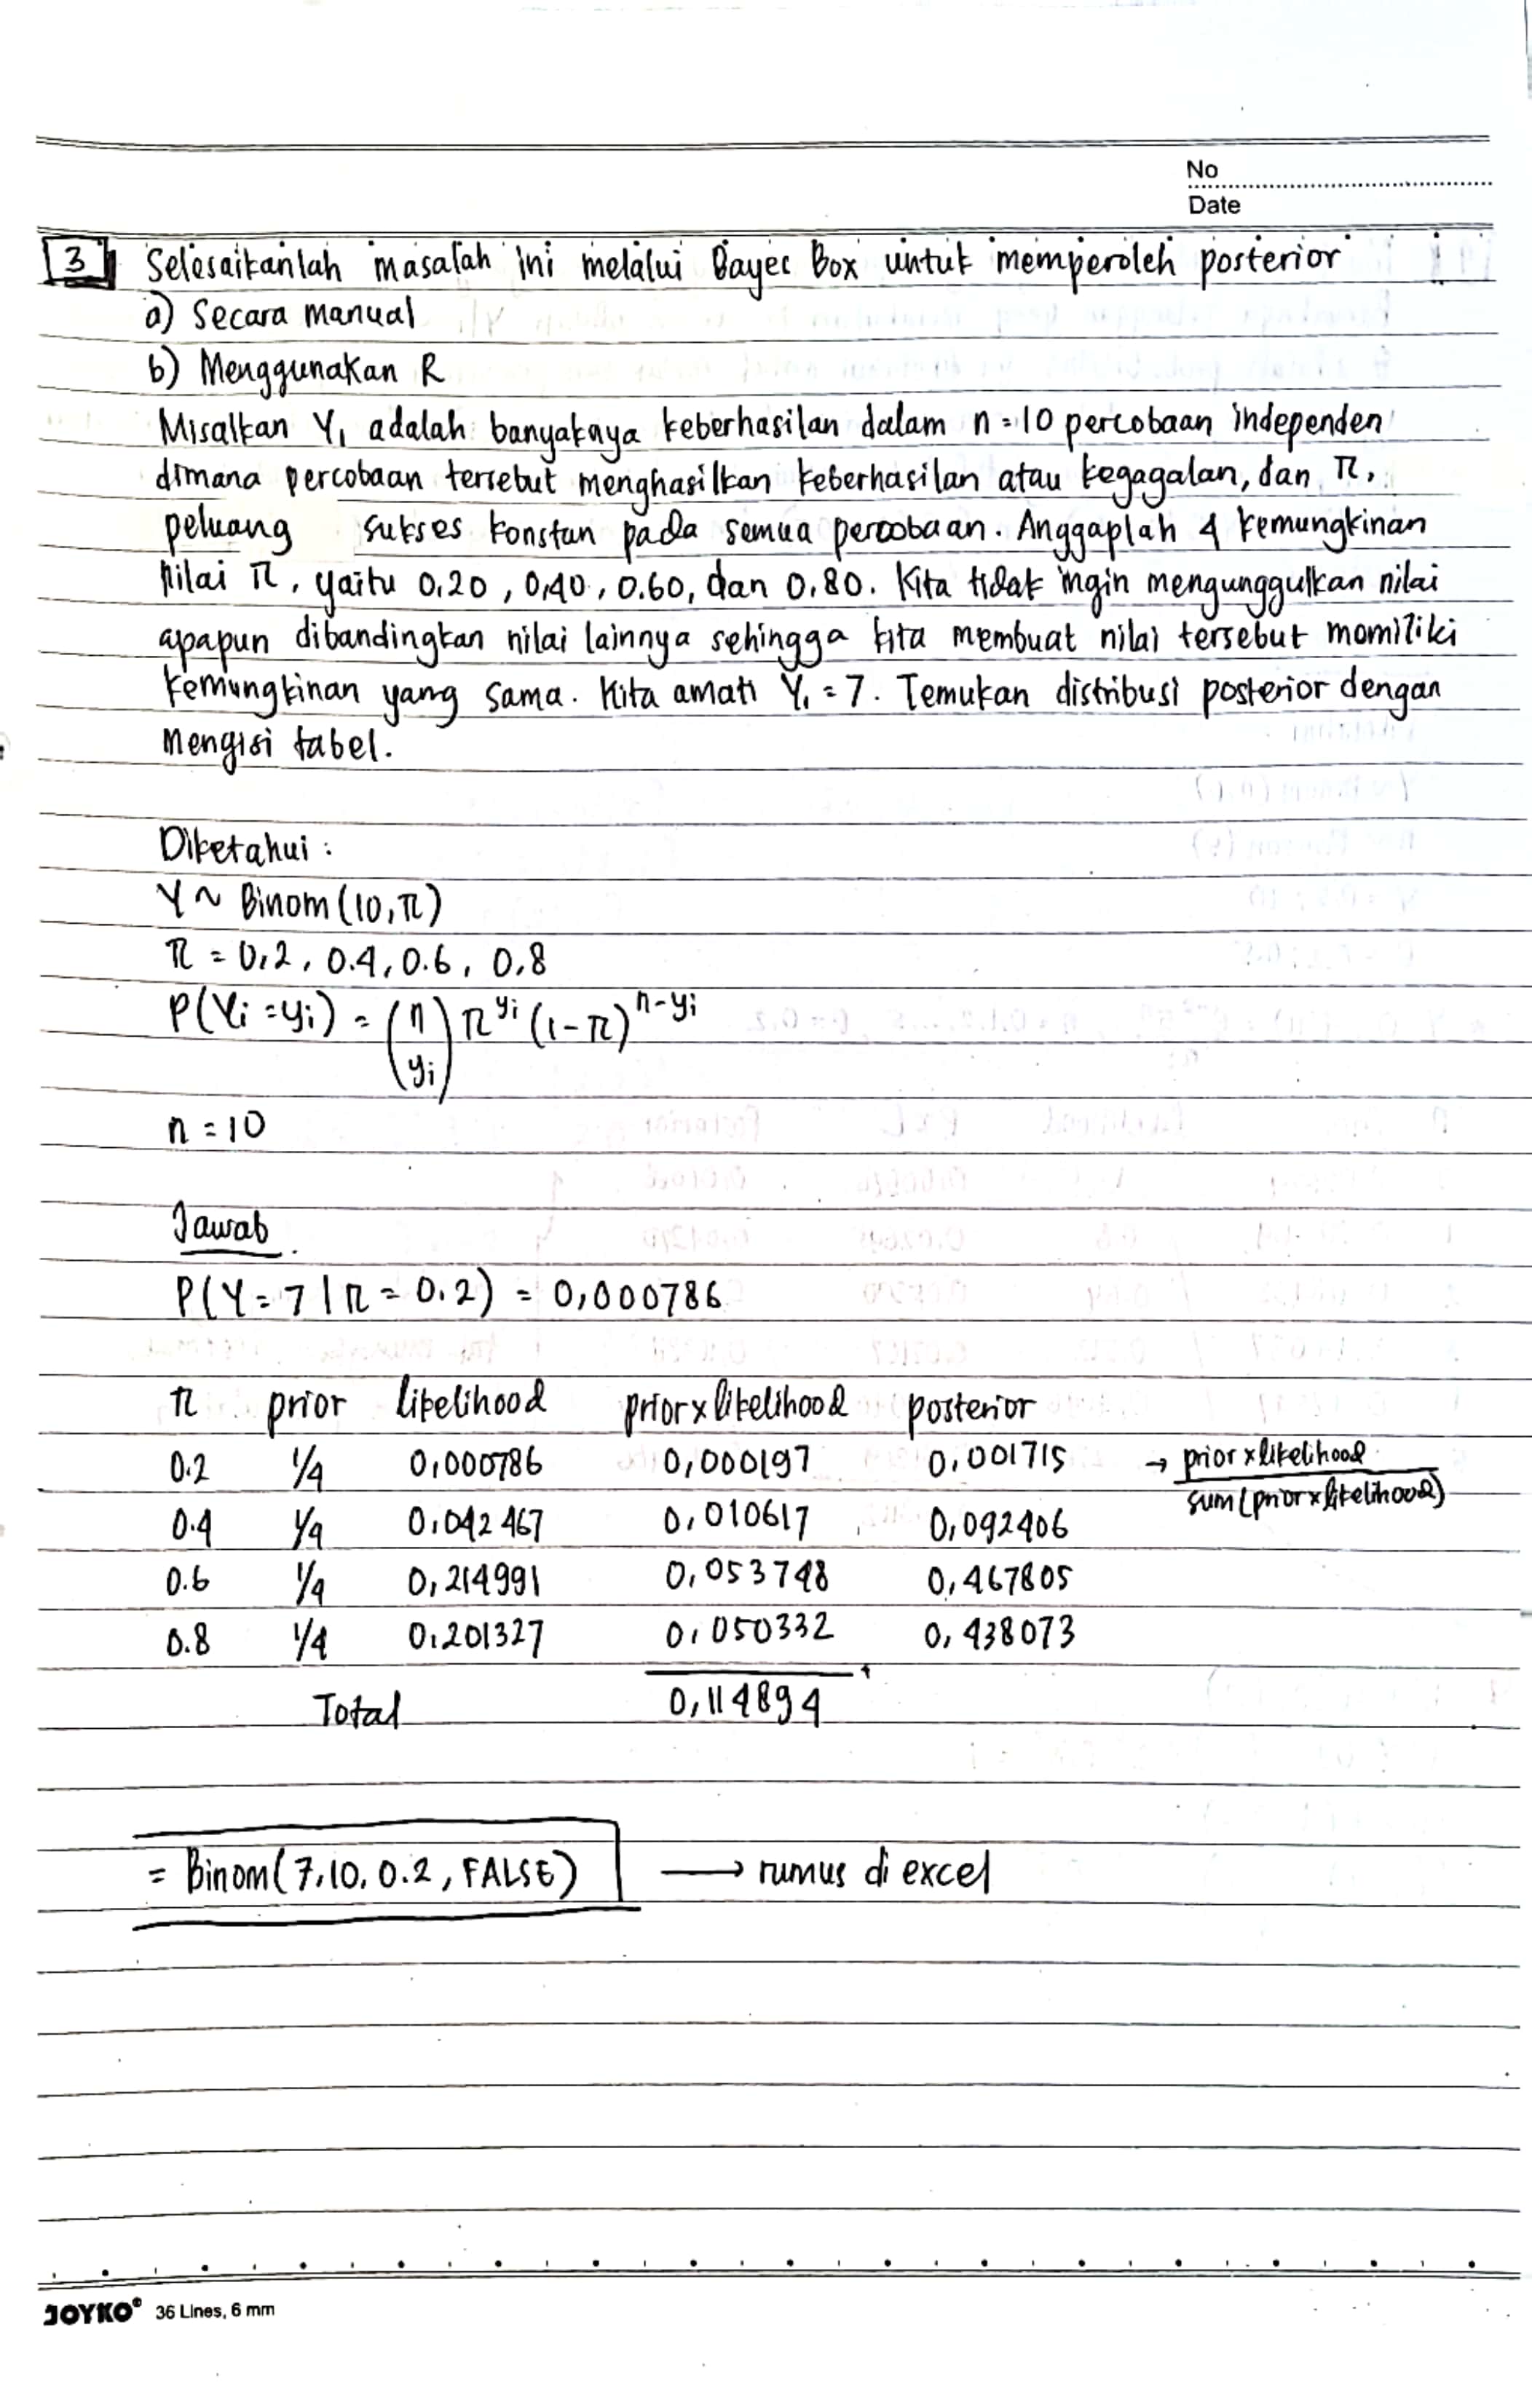 No
Date
3 Selesaikanlah masalah ini melalui Bayes Box untuk memperoleh posterior
a) Secara manual
b) Menggunakan R
Misalkan Y₁ adalah banyaknya keberhasilan dalam n=10 percobaan independen
dimana percobaan tersebut menghasilkan keberhasilan atau kegagalan, dan π,
peluang sukses konstan pada semua percobaan. Anggaplah 4 kemungkinan
nilai π, yaitu 0,20, 0,40, 0.60, dan 0.80. Kita tidak ingin mengunggulkan nilai
apapun dibandingkan nilai lainnya sehingga kita membuat nilai tersebut memiliki
kemungkinan yang sama. Kita amati Y₁ = 7. Temukan distribusi posterior dengan
mengisi tabel.
Diketahui :
Y ~ Binom (10, π)
π = 0,2, 0.4, 0.6, 0,8
P(Yi = yi) = (n yi) π^yi (1-π)^n-yi
n = 10
Jawab
P(Y = 7 | π = 0.2) = 0,000786
π prior likelihood prior x likelihood posterior
0.2 1/4 0,000786 0,000197 0,001715 → prior x likelihood / sum (prior x likelihood)
0.4 1/4 0,042467 0,010617 0,092406
0.6 1/4 0,214991 0,053748 0,467805
0.8 1/4 0,201327 0,050332 0,438073
+
Total 0,114894
= Binom(7,10, 0.2, FALSE) → rumus di excel
JOYKO® 36 Lines, 6 mm